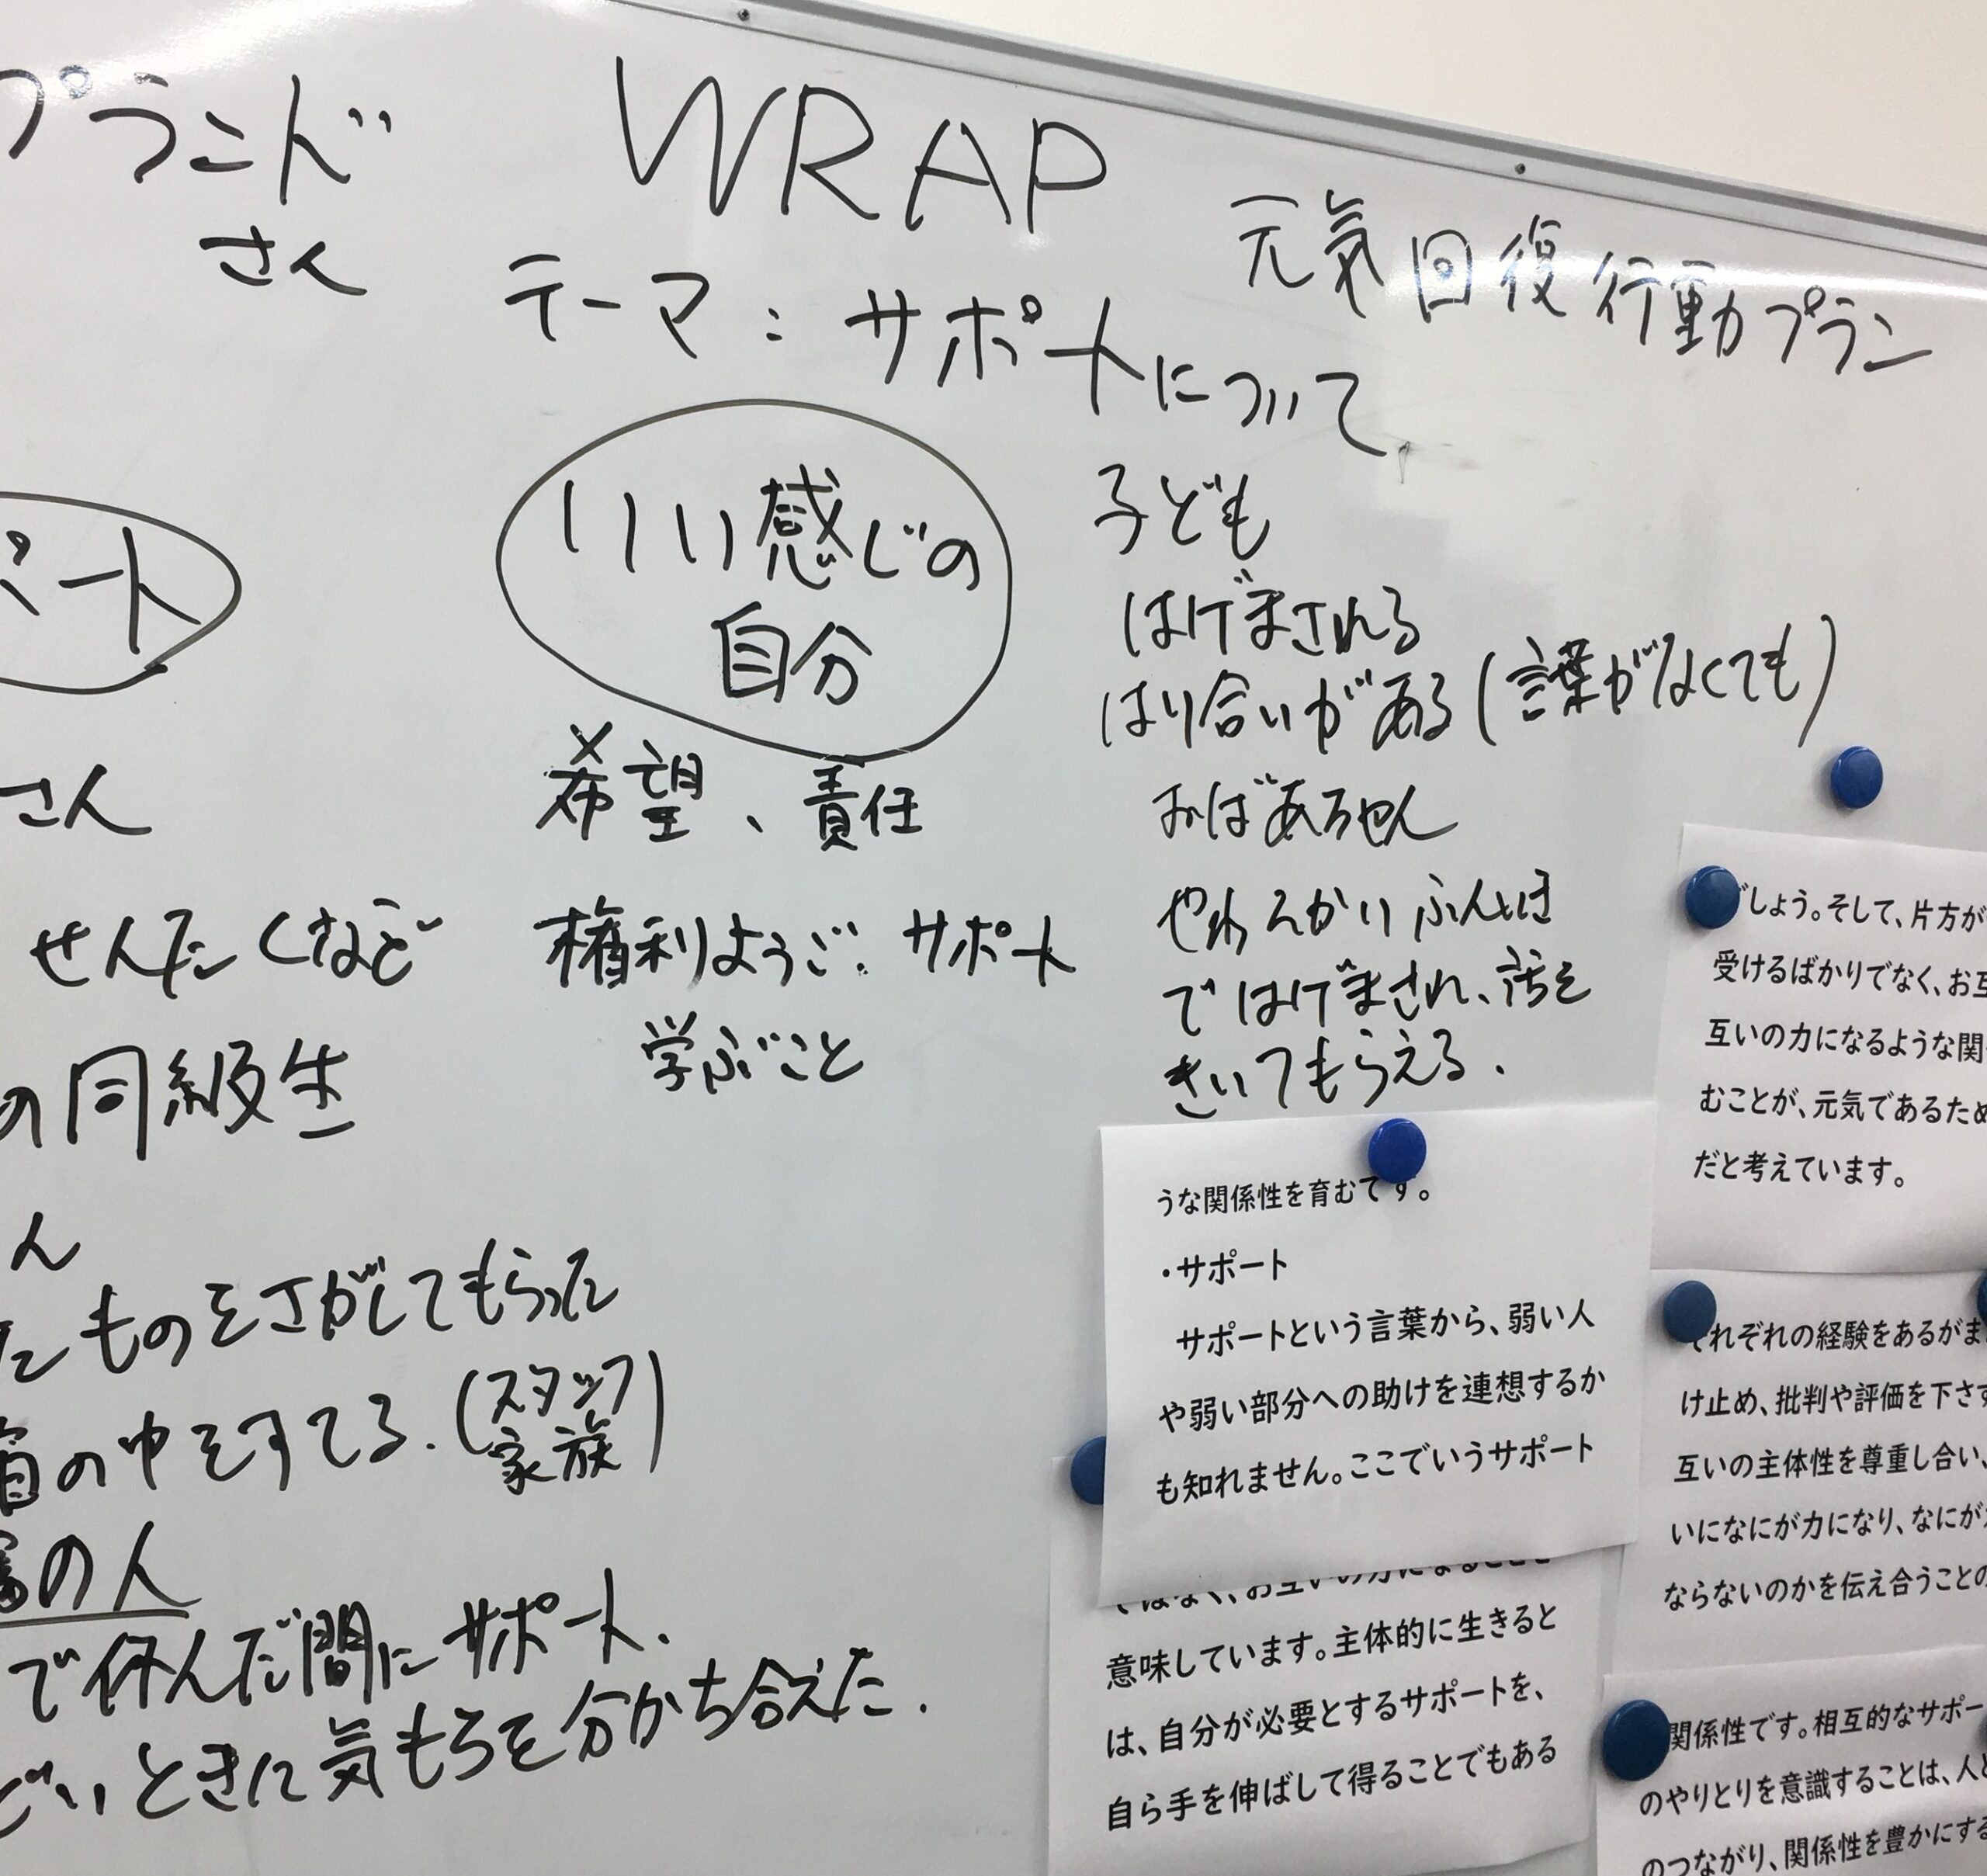 プランド
さん
WRAP
元気回復行動プラン
テーマ：サポートについて
ポート
いい感じの
自分
希望、責任
権利ようご、サポート
学ぶこと
子ども
はげまされる
はり合いがある(言葉がなくても)
おばあちゃん
やわらかいふんいき
ではげまされ、話を
きいてもらえる.
さん
せんたくなど
の同級生
ん
たものをさがしてもらった
箱の中をすてる.(スタッフ
家族)
の人
で休んだ間にサポート.
どいときに気もちを分かち合えた.
うな関係性を育むです。
・サポート
サポートという言葉から、弱い人
や弱い部分への助けを連想するか
も知れません。ここでいうサポート
ではなく、お互いの力になることを
意味しています。主体的に生きると
は、自分が必要とするサポートを、
自ら手を伸ばして得ることでもある
でしょう。そして、片方が
受けるばかりでなく、お互
互いの力になるような関
むことが、元気であるため
だと考えています。
それぞれの経験をあるがま
け止め、批判や評価を下さず
互いの主体性を尊重し合い、
いになにが力になり、なにが
ならないのかを伝え合うことの
関係性です。相互的なサポー
のやりとりを意識することは、人と
のつながり、関係性を豊かにする